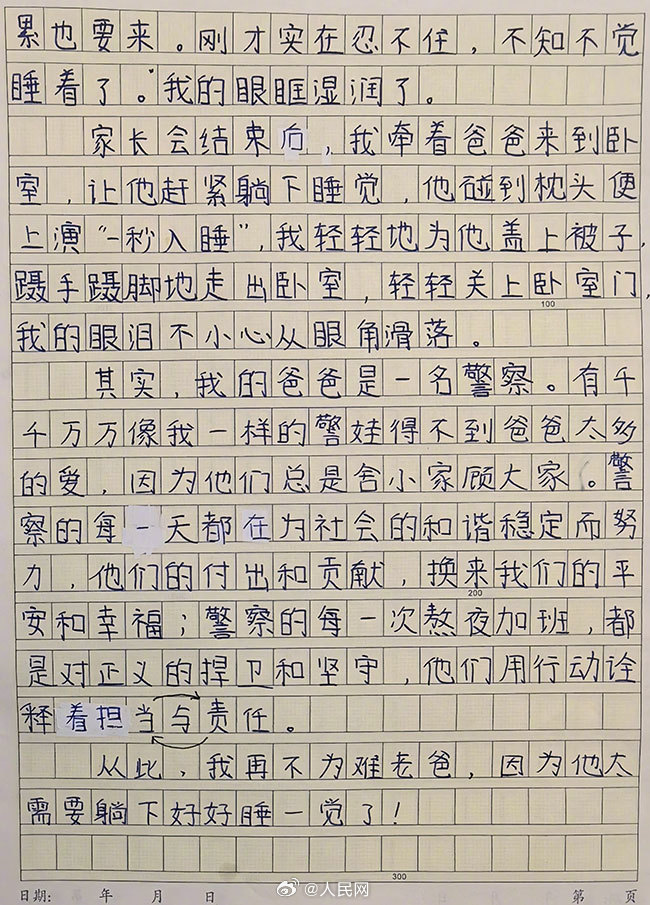 累也要来。刚才实在忍不住，不知不觉
睡着了。我的眼眶湿润了。
家长会结束后，我牵着爸爸来到卧
室，让他赶紧躺下睡觉，他碰到枕头便
上演“一秒入睡”，我轻轻地为他盖上被子，
蹑手蹑脚地走出卧室，轻轻关上卧室门，
100
我的眼泪不小心从眼角滑落。
其实，我的爸爸是一名警察。有千
千万万像我一样的警娃得不到爸爸太多
的爱，因为他们总是舍小家顾大家。警
察的每一天都在为社会的和谐稳定而努
力，他们的付出和贡献，换来我们的平
200
安和幸福；警察的每一次熬夜加班，都
是对正义的捍卫和坚守，他们用行动诠
释着担当与责任。
从此，我再不为难老爸，因为他太
需要躺下好好睡一觉了！
300
日期： 年 月 日 第 页
@人民网